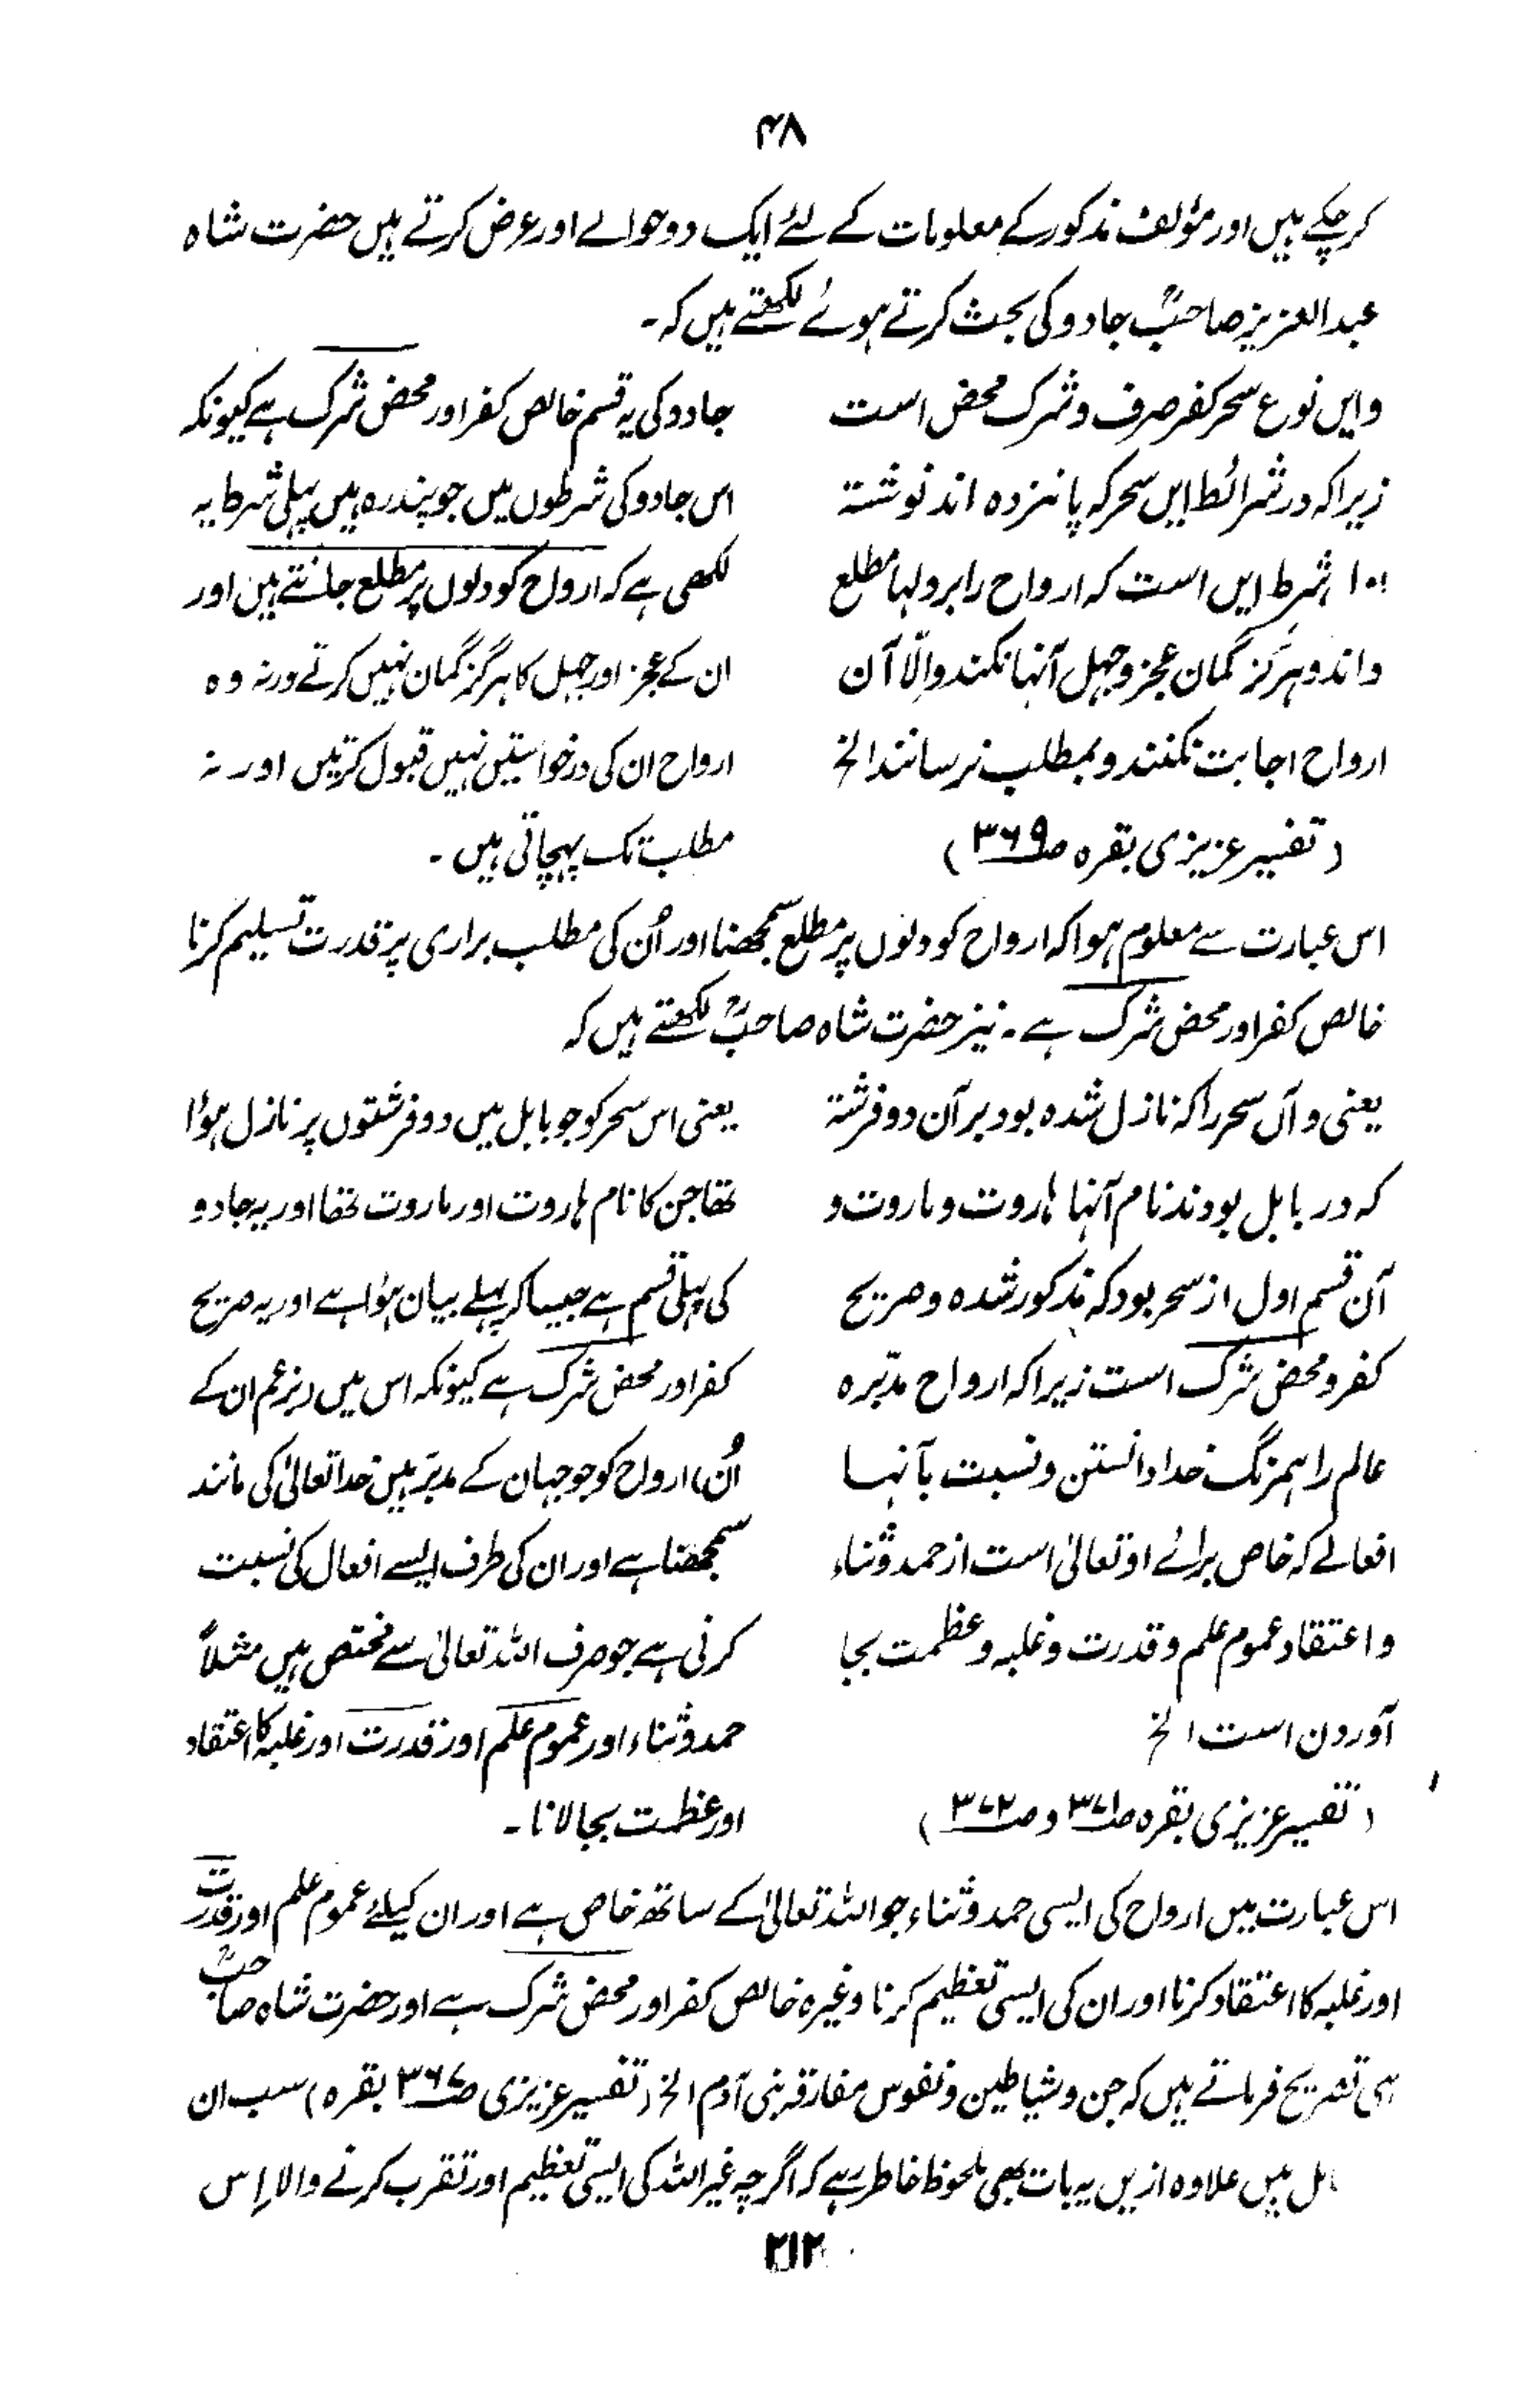 ۴۸
کر چکے ہیں اور مؤلف مذکور کے معلومات کے لئے ایک دو حوالے اور عرض کرتے ہیں حضرت شاہ
عبدالعزیز صاحبؒ جادو کی بحث کرتے ہوئے لکھتے ہیں کہ۔
وایں نوع سحر کفر صرف و شرک محض است
زیرا کہ در شرائط ایں سحر کہ پانزدہ اند نوشتہ
۱۰۱ شرط ایں است کہ ارواح را بر دلہا مطلع
داند و ہرگز گمان عجز و جہل آنہا نکند و الّا آن
ارواح اجابت نکنند و بمطلب نرسانند الخ
(تفسیر عزیزی بقرہ ص۳۶۹)
جادو کی یہ قسم خالص کفر اور محض شرک ہے کیونکہ
اس جادو کی شرطوں میں جو پندرہ ہیں پہلی شرط یہ
لکھی ہے کہ ارواح کو دلوں پر مطلع جانتے ہیں اور
ان کے عجز اور جہل کا ہرگز گمان نہیں کرتے ورنہ وہ
ارواح ان کی درخواستیں نہیں قبول کرتیں اور نہ
مطلب تک پہچاتی ہیں۔
اس عبارت سے معلوم ہوا کہ ارواح کو دلوں پر مطلع سمجھنا اور اُن کی مطلب براری پر قدرت تسلیم کرنا
خالص کفر اور محض شرک ہے۔ نیز حضرت شاہ صاحبؒ لکھتے ہیں کہ
یعنی و آں سحر را کہ نازل شدہ بود بر آن دو فرشتہ
کہ در بابل بودند نام آنہا ہاروت و ماروت و
آن قسم اول از سحر بود کہ مذکور شدہ و صریح
کفر و محض شرک است زیرا کہ ارواح مدبّرہ
عالم را ہمرنگ خدا دانستن و نسبت بآنہا
افعالے کہ خاص برائے او تعالیٰ است از حمد و ثناء
و اعتقاد عموم علم و قدرت و غلبہ و عظمت بجا
آوردن است الخ
(تفسیر عزیزی بقرہ ص۳۷۱ و ص۳۷۲)
یعنی اس سحر کو جو بابل میں دو فرشتوں پر نازل ہوٗا
تھا جن کا نام ہاروت اور ماروت تھا اور یہ جادو
کی پہلی قسم ہے جیسا کہ پہلے بیان ہوٗا ہے اور یہ صریح
کفر اور محض شرک ہے کیونکہ اس میں (بزعم ان کے
اُن) ارواح کو جو جہان کے مدبّر ہیں خدا تعالیٰ کی مانند
سمجھنا ہے اور ان کی طرف ایسے افعال کی نسبت
کرنی ہے جو صرف اللہ تعالیٰ سے مختص ہیں مثلاً
حمد و ثناء اور عموم علم اور قدرت اور غلبہ کا اعتقاد
اور عظمت بجا لانا۔
اس عبارت میں ارواح کی ایسی حمد و ثناء جو اللہ تعالیٰ کے ساتھ خاص ہے اور ان کیلئے عموم علم اور قدرت
اور غلبہ کا اعتقاد کرنا اور ان کی ایسی تعظیم کرنا وغیرہ خالص کفر اور محض شرک ہے اور حضرت شاہ صاحبؒ
ہی تصریح فرماتے ہیں کہ جن و شیاطین و نفوس مفارقہ بنی آدم الخ (تفسیر عزیزی ص۳۶۷ بقرہ) سب ان
میں علاوہ ازیں یہ بات بھی ملحوظ خاطر رہے کہ اگرچہ غیر اللہ کی ایسی تعظیم اور تقرب کرنے والا اِس
۲۱۲